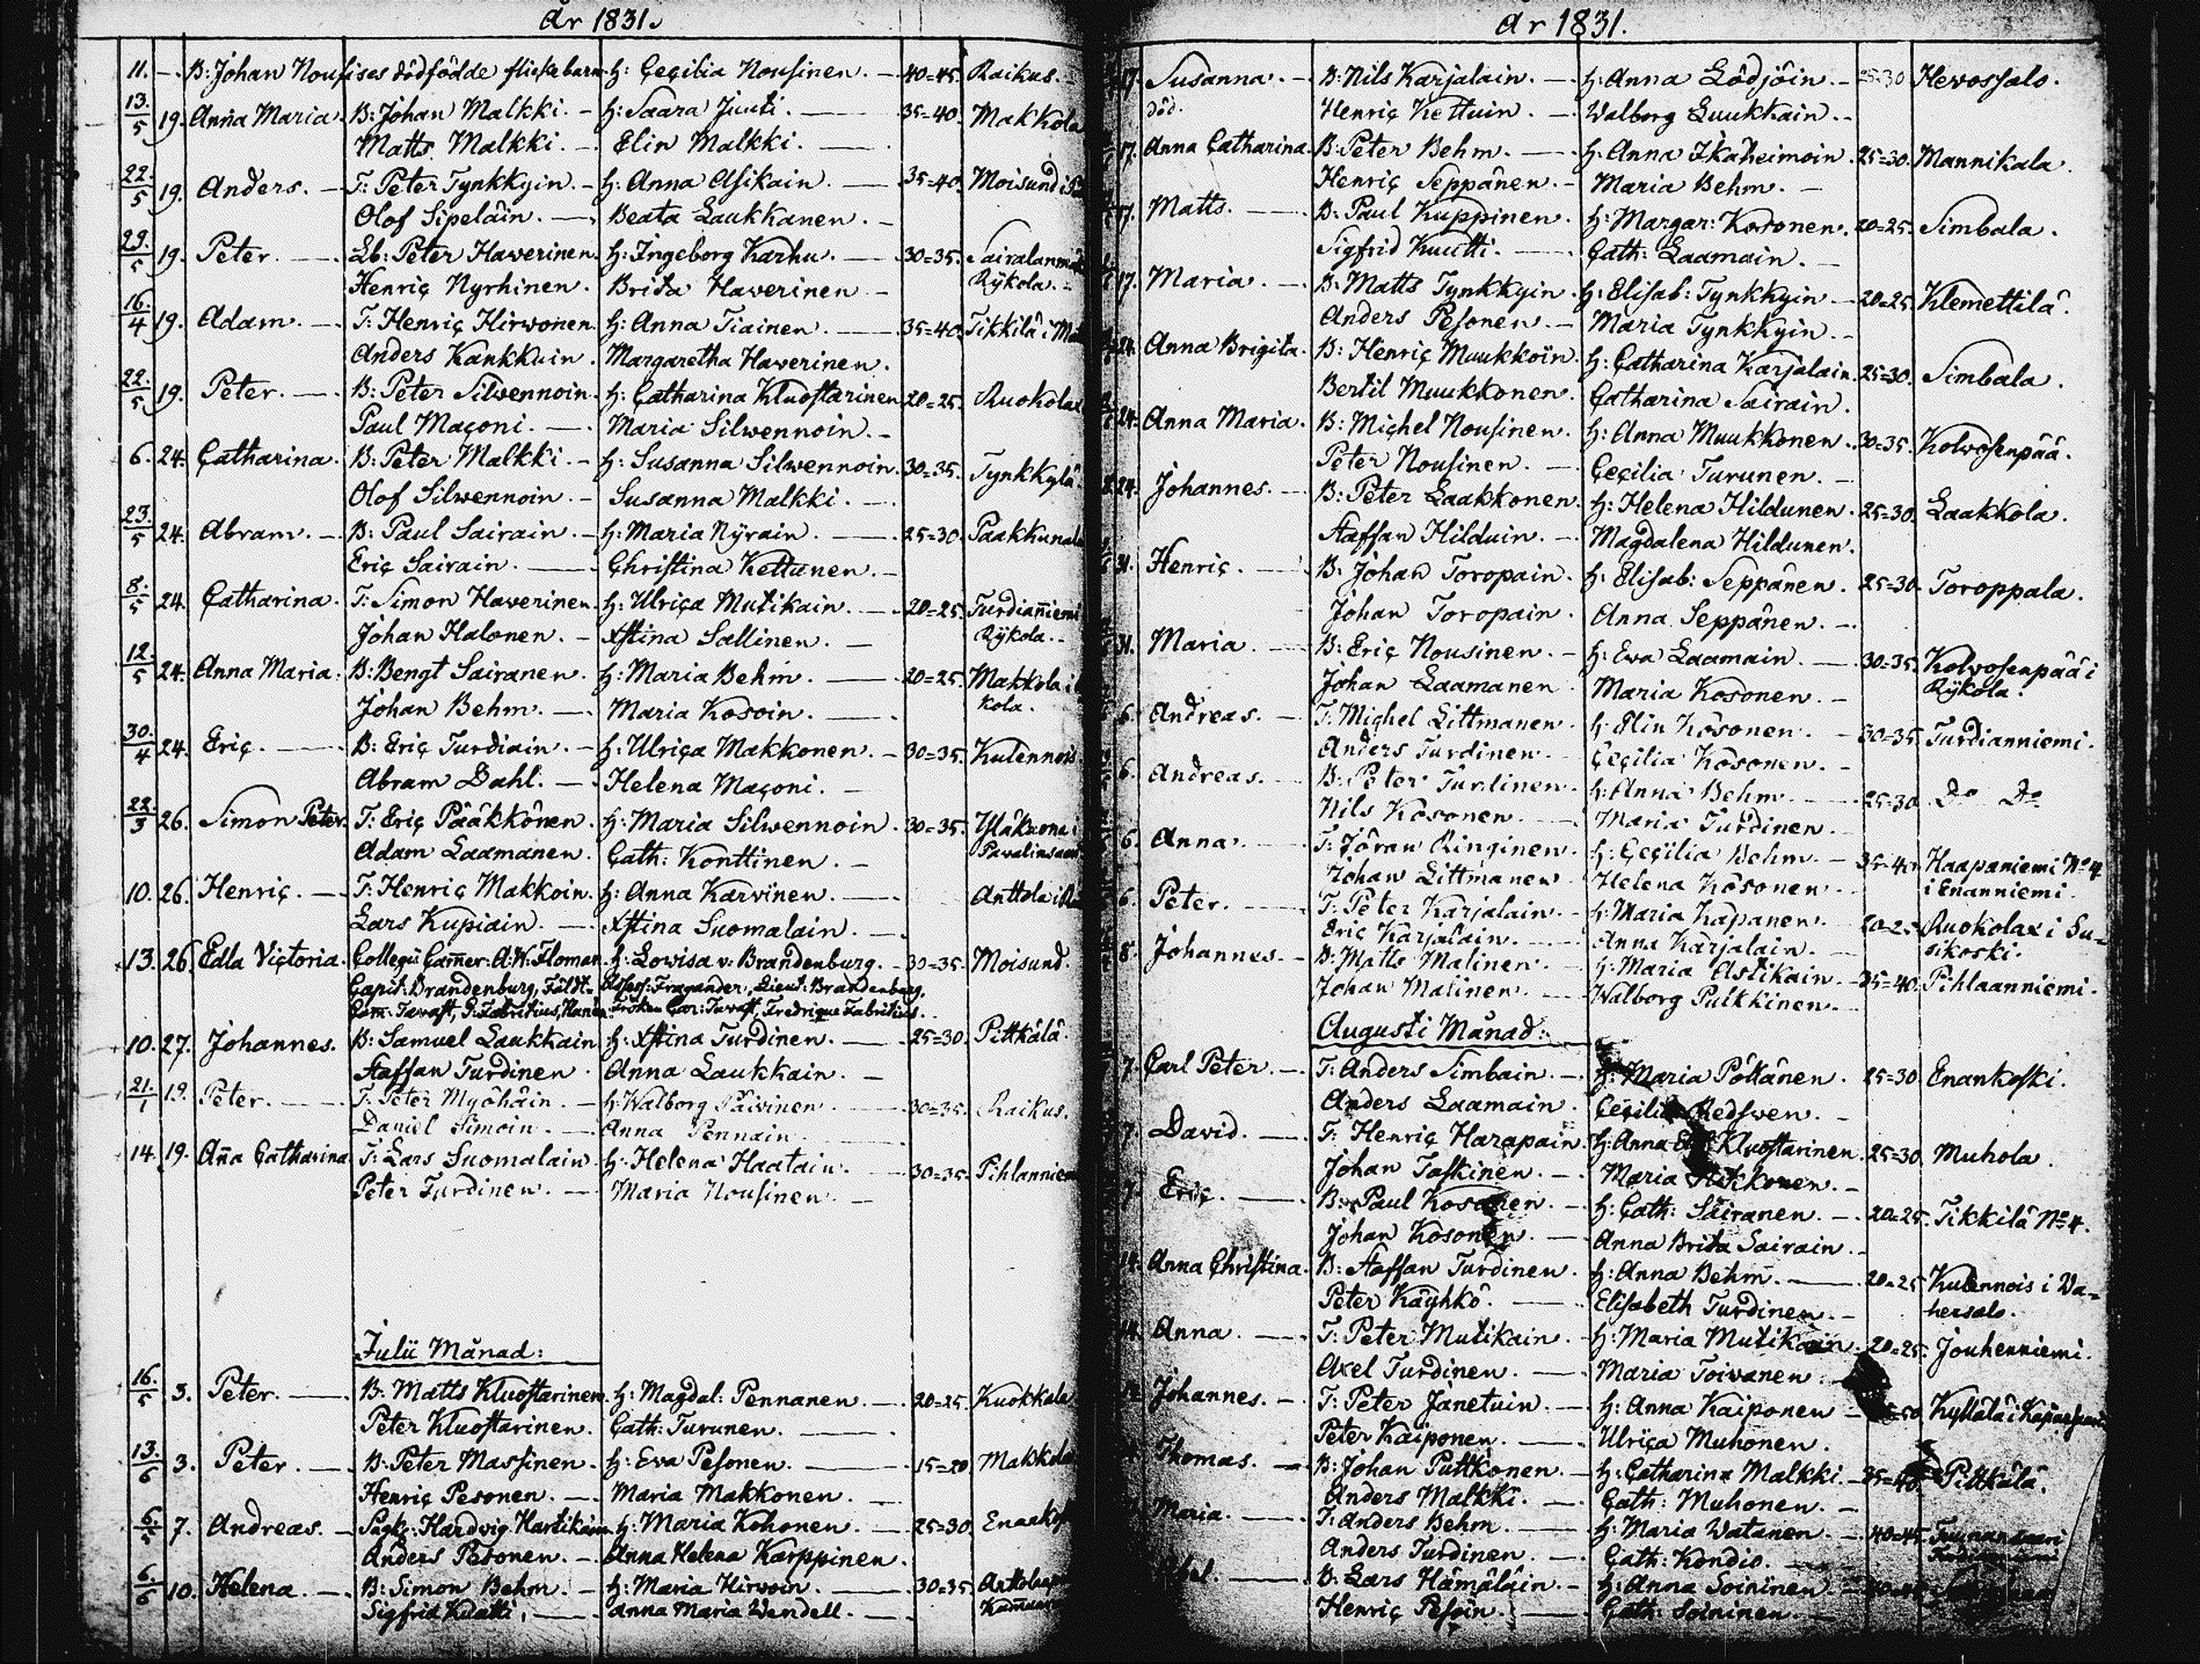 År 1831.
11. – B: Johan Nousises dödfödde flickebarn H: Cecilia Nousinen. – 40=45. Raikus.
13/5 19. Anna Maria. B: Johan Malkki. – H: Saara Juuti. – 35=40. Makkola
Matts Malkki. – Elin Malkki. –
22/5 19. Anders. – T: Peter Tynkkyin. – H: Anna Asikain. – 35=40. Moisund i
Olof Sipeläin. – Beata Laukkanen. –
29/5 19. Peter. – Lb: Peter Haverinen. H: Ingeborg Karhu. – 30=35. Sairalanmäki
Henric Nyrhinen. Brita Haverinen – Rÿkola. –
16/4 19. Adam. – T: Henric Hirwonen. H: Anna Tiainen. – 35=40. Tikkilä i
Anders Kankkuin. Margaretha Haverinen.
22/5 19. Peter. – B: Peter Silwennoin. H: Catharina Kluostarinen 20=25. Ruokolax
Paul Maconi. – Maria Silwennoin. –
6. 24. Catharina. B: Peter Malkki. – H: Susanna Silwennoin. 30=35. Tynkkylä
Olof Silwennoin. – Susanna Malkki. –
23/5 24. Abram. – B: Paul Sairain. – H: Maria Nÿrain. – 25=30. Paakkunala
Eric Sairain. – Christina Kettunen. –
8/5 24. Catharina. T: Simon Haverinen. H: Ulrica Mutikain. – 20=25. Turdianniemi
Johan Halonen. – Xstina Sallinen. – Rÿkola. –
12/5 24. Anna Maria. B: Bengt Sairanen. H: Maria Behm. – 20=25. Makkola i
Johan Behm. – Maria Kosoin. – kola.
30/4 24. Eric. – B: Eric Turdiain. – H: Ulrica Makkonen. – 30=35. Kulennois
Abram Dahl. – Helena Maconi. –
22/3 26. Simon Peter. T: Eric Pääkkönen. H: Maria Silwennoin. 30=35.
Adam Laamanen. Cath: Konttinen. –
10. 26. Henric. – T: Henric Makkoin. H: Anna Karvinen. – Anttola i
Lars Kupiain. – Xstina Suomalain. –
13. 26. Edla Victoria. Collegii Cam̄er: A:W: Floman. H: Lowisa v: Brandenburg. – 30=35. Moisund.
Capit: Brandenburg, Fält= Assess: Fragander, Lieut: Brandenburg,
Tavast, Fabritius, Fröken Car: Tavast, Fredrique Fabritius.
10. 27. Johannes. B: Samuel Laukkain. H: Xstina Turdinen. – 25=30. Pitkälä.
Staffan Turdinen. Anna Laukkain. –
21/1 19. Peter. – T: Peter Myöhäin. – H: Walborg Päivinen. – 30=35. Raikus.
Daniel Simoin. – Anna Pennain. –
14. 19. Ana Catharina T: Lars Suomalain. H: Helena Haatain. – 30=35. Pihlanniemi
Peter Turdinen. – Maria Nousinen. –
Julii Månad:
16/5 3. Peter. – B: Matts Kluostarinen. H: Magdal: Pennanen. – 20=25. Kuokkala
Peter Kluostarinen. Cath: Turunen. –
13/6 3. Peter. – B: Peter Massinen. – H: Eva Pesonen. – 15=20. Makkola
Henric Pesonen. – Maria Makkonen. –
6/5 7. Andreas. – Hardvig Hartikain. H: Maria Kohonen. – 25=30.
Anders Pesonen. – Anna Helena Karppinen.
6/6 10. Helena. – B: Simon Behm. – H: Maria Hirvoin. – 30=35.
Sigfrid Kuutti. – Anna Maria Wendell. –
År 1831.
17. Susanna. – B: Nils Karjalain. – H: Anna Lödjöin. – 25=30 Hevossalo.
död. Henric Kettuin. – Walborg Luukkain. –
17. Anna Catharina. B: Peter Behm. – H: Anna Ikäheimoin. 25=30. Mannikala.
Henric Seppänen. – Maria Behm. –
17. Matts. – B: Paul Kuppinen. H: Margar: Kosonen. 20=25. Simbala.
Sigfrid Kuutti. – Cath: Laamain. –
17. Maria. – B: Matts Tynkkyin. H: Elisab: Tynkkyin – 20=25. Klemettilä.
Anders Pesonen. – Maria Tynkkyin. –
24. Anna Brigita. B: Henric Muukkoin. H: Catharina Karjalain. 25=30. Simbala.
Bertil Muukkonen. Catharina Sairain.
24. Anna Maria. B: Michel Nousinen. H: Anna Muukkonen. 30=35. Kolvosenpää.
Peter Nousinen. – Cecilia Turunen. –
24. Johannes. – B: Peter Laakkonen. H: Helena Hildunen. 25=30. Laakkola.
Staffan Hilduin. – Magdalena Hildunen.
31. Henric. – B: Johan Toropain. H: Elisab: Seppänen. 25=30. Toroppala.
Johan Toropain. Anna Seppänen. –
31. Maria. – B: Eric Nousinen. – H: Eva Laamain. – 30=35. Kolvosenpää i
Johan Laamanen. Maria Kosonen. – Rÿkola.
6. Andreas. – T: Michel Littmanen. H: Elin Kosonen. – 30=35. Turdianniemi.
Anders Turdinen. Cecilia Kosonen. –
6. Andreas. B: Peter Turdinen. H: Anna Behm. – 25=30. Do Do
Nils Kosonen. – Maria Turdinen. –
6. Anna. – T: Jöran Ringinen. H: Cecilia Behm. – 35=40. Haapaniemi No 4
Johan Littmanen. Helena Kosonen. i Enanniemi.
6. Peter. – T: Peter Karjalain. – H: Maria Kapanen. 20=25 Ruokolax i Su=
Eric Karjalain. – Anna Karjalain. – sikoski.
8. Johannes. – B: Matts Malinen. – H: Maria Astikain. 35=40. Pihlaanniemi.
Johan Malinen. – Walborg Pulkkinen. –
Augusti Månad:
7. Carl Peter. – T: Anders Simbain. – H: Maria Pöllänen. 25=30 Enankoski.
Anders Laamain. Cecilia Redswen. –
7. David. – T: Henric Harapain. H: Anna Kluostarinen. 25=30. Muhola.
Johan Taskinen. – Maria –
7. Eric. – B: Paul Kosonen. – H: Cath: Sairanen. – 20=25. Tikkilä No 4.
Johan Kosonen. – Anna Brita Sairain. –
14. Anna Christina. B: Staffan Turdinen. H: Anna Behm. – 20=25 Kulennois i Va=
Peter Käyhkö. – Elisabeth Turdinen. – hersalo.
14. Anna. – T: Peter Mutikain. H: Maria Mutikain. 20=25. Jouhenniemi.
Axel Turdinen. – Maria Toivanen. –
14. Johannes. – T: Peter Jänetuin. – H: Anna Kaiponen –
Peter Kaiponen. – Ulrica Muhonen.
Thomas. – B: Johan Puttkonen. – H: Catharina Malkki. – 35=40. Pitkälä.
Anders Malkki. – Cath: Muhonen. –
Maria. – T: Anders Behm. – H: Maria Watanen. – 40=45.
Anders Turdinen. – Cath: Kondio. –
B: Lars Hämäläin. – H: Anna Soininen. –
Henric Pesoin. – Cath: Soininen. –